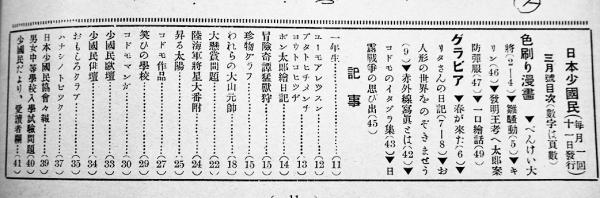 日本少國民 每月一回十一日發行
三月號目次(數字は頁數)
色刷り漫畫 ▼べんけい大
將(2―4)▼雛騷動(5)▼キ
リン(46)▼發明王考へ太郎案
防彈服(47)▼一口繪話(49)
グラビア ▼春が來た(6)▼
リタさんの日記(7―8)▼お
人形の世界をのぞきませう
(9)▼赤外線寫眞とは(42)▼
コドモのイタヅラ集(43)▼日
露戰爭の思ひ出(45)
記事
一年生 (11)
ユーモアレツスン (12)
アタトロチメイチ (13)
コウトコセツザ
ポン太郎繪日記 (14)
冒險奇譚猛獸狩 (15)
珍物グラフ (15)
われらの大山元帥 (18)
大懸賞問題 (22)
陸海軍將星大番附 (24)
昇る太陽 (25)
コドモ作品 (27)
笑ひの學校 (29)
コドモマンガ (30)
少國民歌壇 (33)
少國民俳壇 (34)
おもしろクラブ (35)
ハナシノトピツク (37)
日本少國民協會々報 (39)
男女中等學校入學試驗問題 (40)
少國民だより、愛讀者欄 (41)